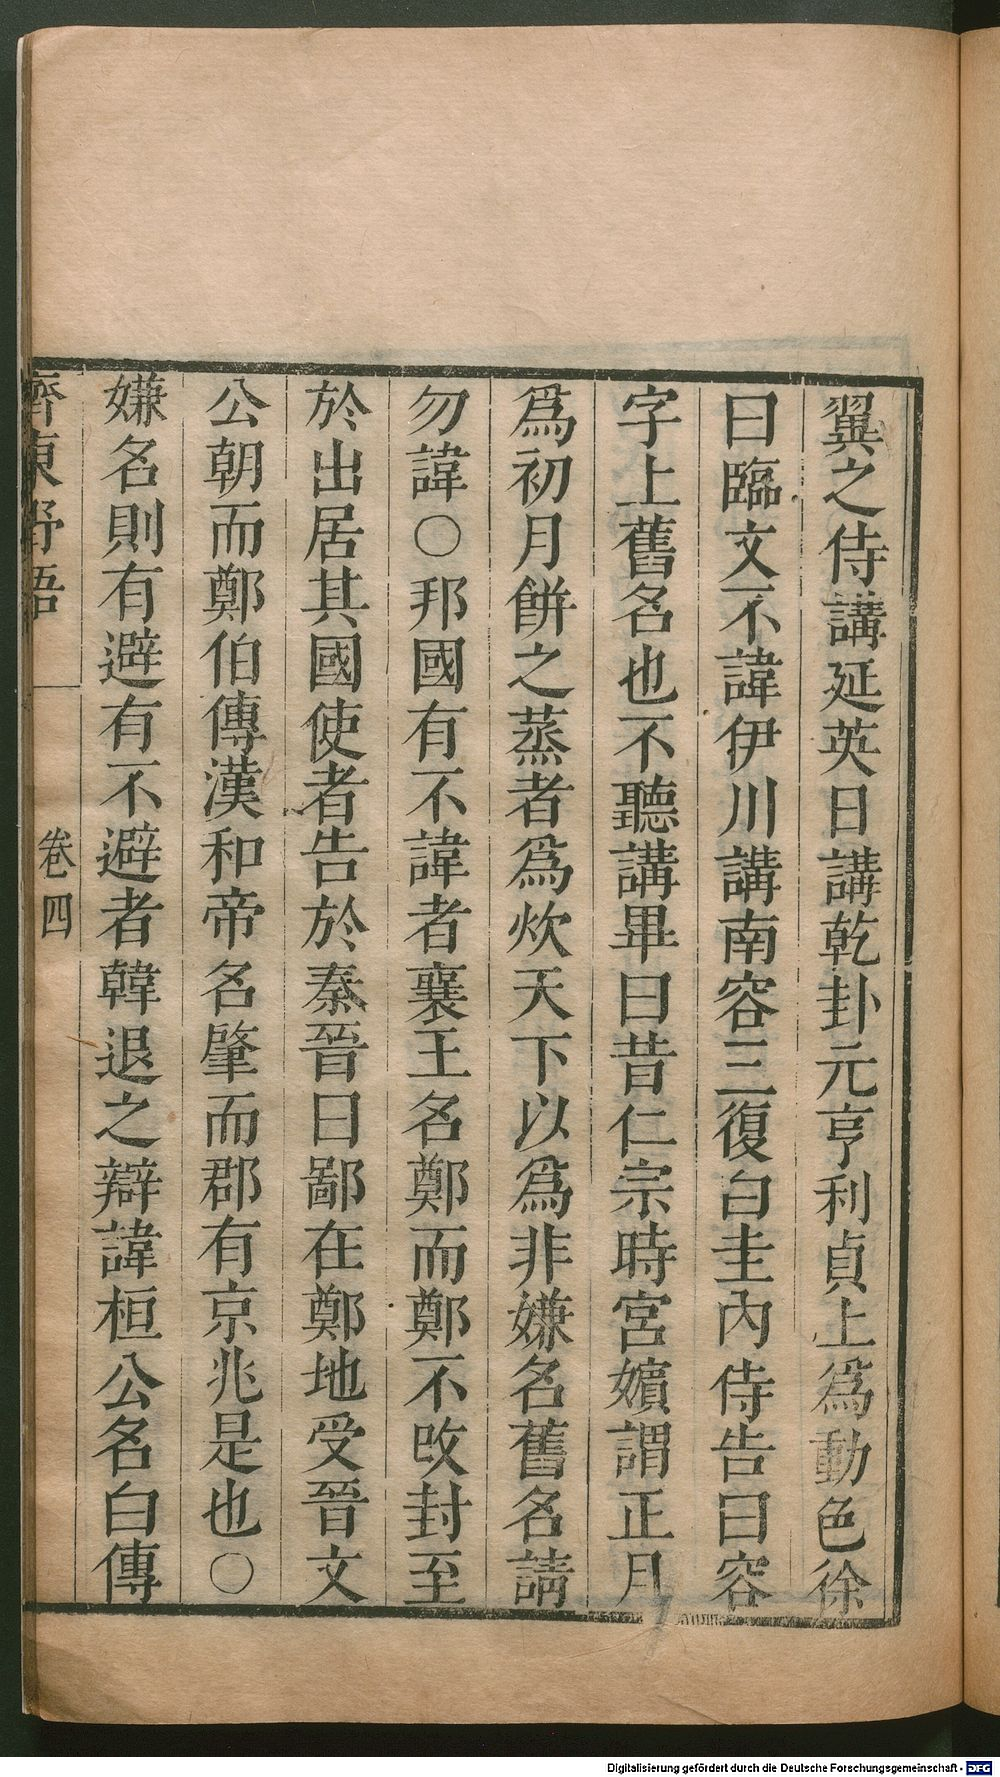 翼之侍講延英日講乾卦元亨利貞上爲動色徐
曰臨文不諱伊川講南容三復白圭內侍告曰容
字上舊名也不聽講畢曰昔仁宗時宮嬪謂正月
爲初月餅之蒸者爲炊天下以爲非嫌名舊名請
勿諱○邦國有不諱者襄王名鄭而鄭不改封至
於出居其國使者告於秦晉曰鄙在鄭地受晉文
公朝而鄭伯傳漢和帝名肇而郡有京兆是也○
嫌名則有避有不避者韓退之辯諱桓公名白傳
齊東野語
卷四
Digitalisierung gefördert durch die Deutsche Forschungsgemeinschaft - DFG